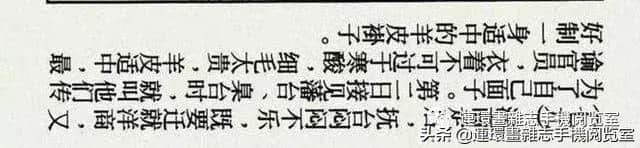 抚台闷闷不乐，既要迁就洋商，又
为了自己面子。第二日接见藩台、臬台时，就叫他们传
谕官员，衣着不可过于寒酸，细毛太贵，羊皮适中，最
好制一身适中的羊皮褂子。
連環畫雜志手機阅览室
头条@連環畫雜志手機阅览室